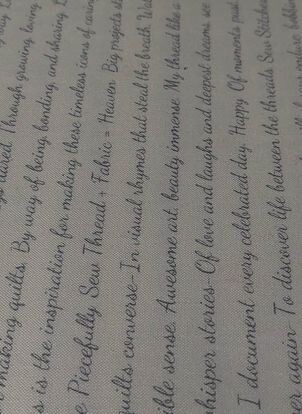 eased. Through growing loving
making quilts. By way of being, bonding, and sharing. E
s is the inspiration for making these timeless icons of caring
e Piecefully Sew Thread + Fabric = Heaven Big projects
quilts converse-In visual rhymes that steal the breath
ible sense. Awesome art, beauty immense. My thread like a
hisper stories-Of love and laughs and deepest dreams. see
I document every celebrated day. Happy Of moments past
es again-To discover life between the threads Sew Stitches